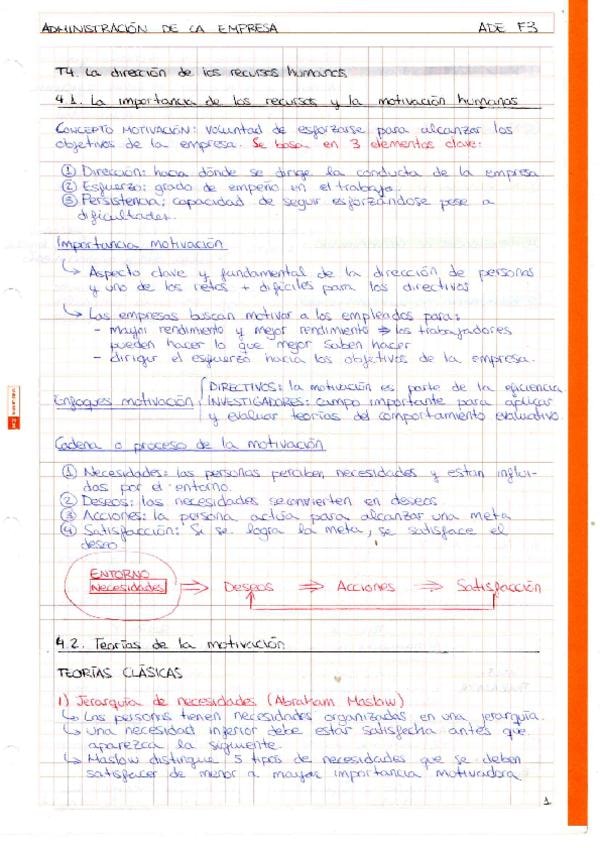 ADMINISTRACIÓN DE LA EMPRESA ADE F3
T4. La dirección de los recursos humanos
4.1. La importancia de los recursos y la motivación humanos
CONCEPTO MOTIVACIÓN: voluntad de esforzarse para alcanzar los
objetivos de la empresa. Se basa en 3 elementos clave:
① Dirección: hacia dónde se dirige la conducta de la empresa
② Esfuerzo: grado de empeño en el trabajo.
③ Persistencia: capacidad de seguir esforzándose pese a
dificultades.
Importancia motivación
↳ Aspecto clave y fundamental de la dirección de personas
y uno de los retos + difíciles para los directivos
↳ Las empresas buscan motivar a los empleados para:
- mayor rendimiento y mejor rendimiento ⇒ los trabajadores
pueden hacer lo que mejor saben hacer
- dirigir el esfuerzo hacia los objetivos de la empresa.
Enfoques motivación
DIRECTIVOS: la motivación es parte de la eficiencia
INVESTIGADORES: campo importante para aplicar
y evaluar teorías del comportamiento evaluativo.
Cadena o proceso de la motivación
① Necesidades: las personas perciben necesidades y están influi-
dos por el entorno.
② Deseos: las necesidades se convierten en deseos
③ Acciones: la persona actúa para alcanzar una meta
④ Satisfacción: Si se logra la meta, se satisface el
deseo
ENTORNO
Necesidades ⇒ Deseos ⇒ Acciones ⇒ Satisfacción
4.2. Teorías de la motivación
TEORÍAS CLÁSICAS
1) Jerarquía de necesidades (Abraham Maslow)
↳ Las personas tienen necesidades organizadas en una jerarquía.
↳ Una necesidad inferior debe estar satisfecha antes que
aparezca la siguiente.
↳ Maslow distingue 5 tipos de necesidades que se deben
satisfacer de menor a mayor importancia motivadora
1